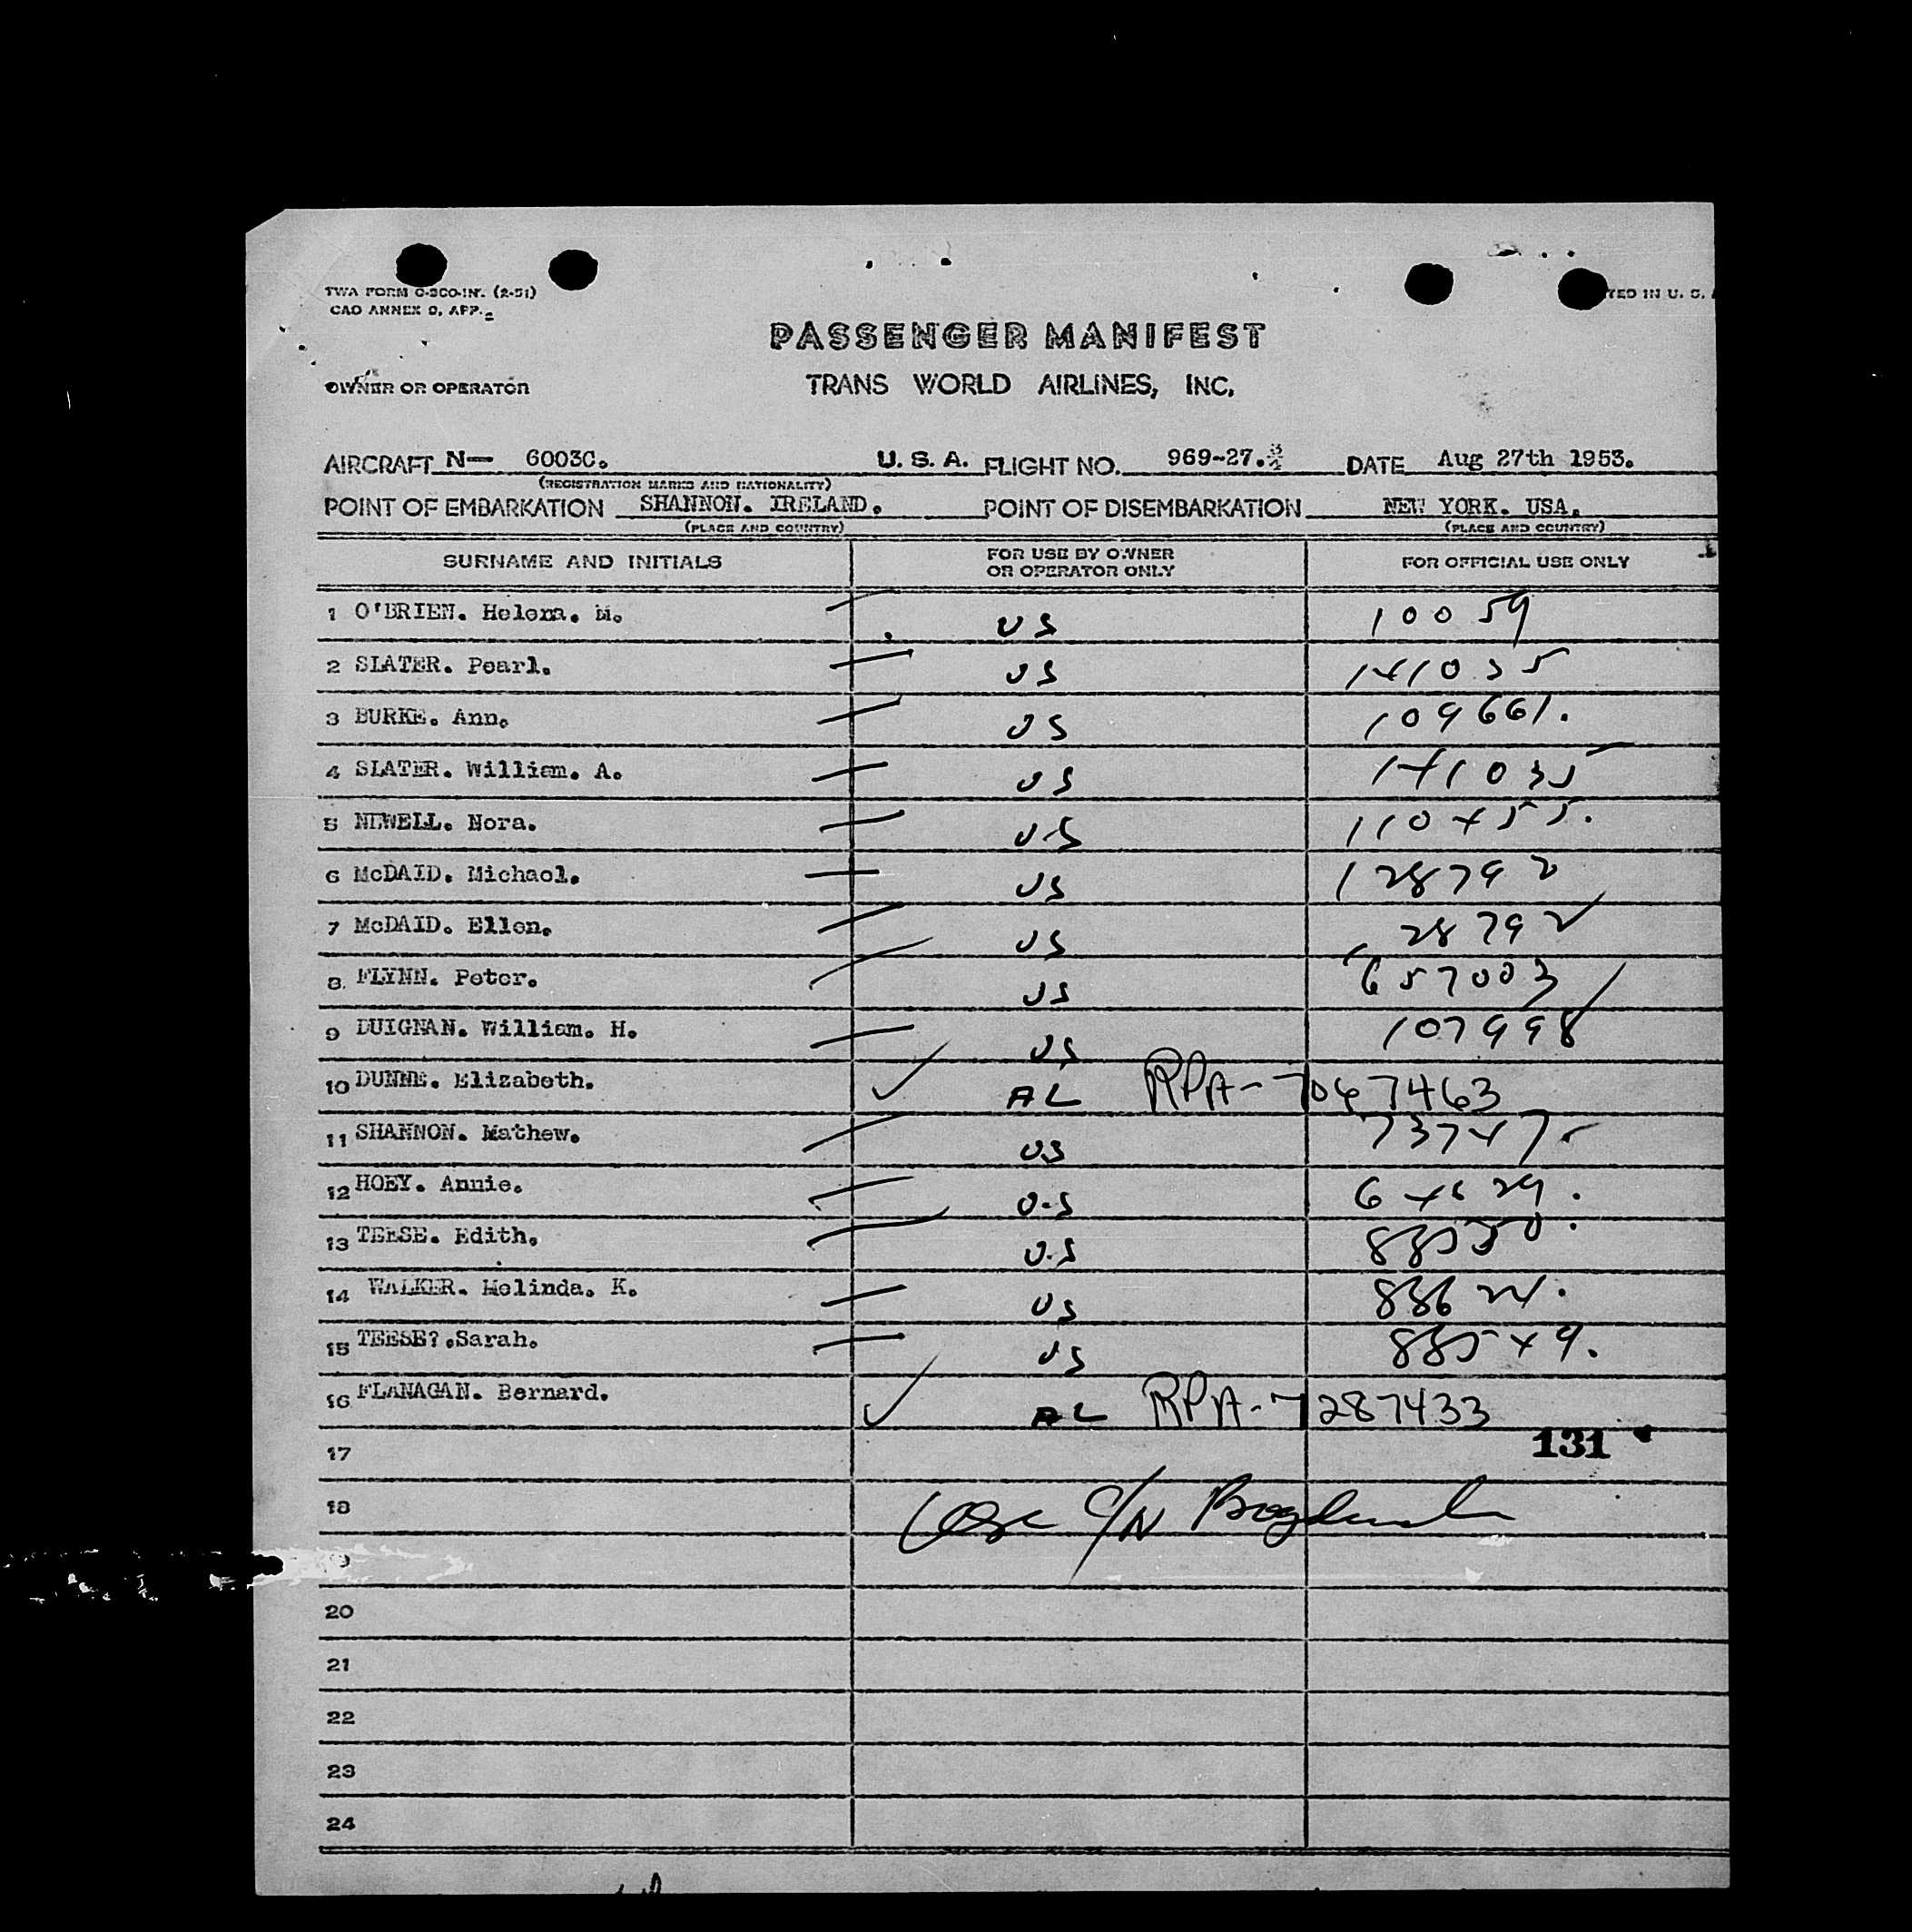 TWA FORM
CAO ANNEX 9, APP.
TED IN U. S.
PASSENGER MANIFEST
OWNER OR OPERATOR
TRANS WORLD AIRLINES, INC.
AIRCRAFT N— 6003C. U. S. A. FLIGHT NO. 969-27. DATE Aug 27th 1953.
(REGISTRATION MARKS AND NATIONALITY)
POINT OF EMBARKATION SHANNON. IRELAND. POINT OF DISEMBARKATION NEW YORK. USA.
(PLACE AND COUNTRY) (PLACE AND COUNTRY)
SURNAME AND INITIALS FOR USE BY OWNER OR OPERATOR ONLY FOR OFFICIAL USE ONLY
1 O'BRIEN. Helena. M. US 10059
2 SLATER. Pearl. US 141035
3 BURKE. Ann. US 109661.
4 SLATER. William. A. US 141035
5 NEWELL. Nora. U.S 110455.
6 McDAID. Michael. US 128792
7 McDAID. Ellen. US 128792
8 FLYNN. Peter. US 657003
9 DUIGNAN. William. H. US 107998
10 DUNNE. Elizabeth. AL RPA-7067463
11 SHANNON. Mathew. US 73747
12 HOEY. Annie. U.S
13 TEESE. Edith. U.S
14 WALKER. Melinda. K. US
15 TEESE?.Sarah. US 88549.
16 FLANAGAN. Bernard. AL RPA-7287433
17 131
18
20
21
22
23
24